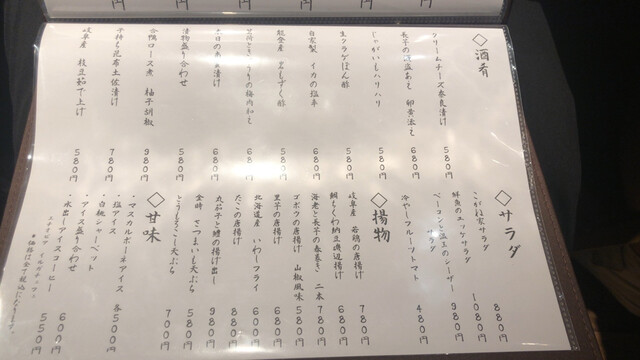 ◇酒肴
クリームチーズ奈良漬け 580円
長芋の酒盗あえ 卵黄添え 680円
じゃがいもハリハリ 580円
生クラゲぽん酢 580円
自家製 イカの塩辛 680円
能登産 岩もずく酢 580円
きゅうりの梅肉和え 680円
本日のあま漬け 680円
漬物盛り合わせ 580円
合鴨ロース煮 柚子胡椒 980円
子持ち昆布土佐漬け 780円
岐阜産 枝豆茹で上げ 580円
◇サラダ
こがね家サラダ 880円
鮮魚のユッケサラダ 1080円
ベーコンと温玉のシーザーサラダ 980円
冷やしフルーツトマト 480円
◇揚物
岐阜産 若鶏の唐揚げ 780円
鯛ちくわ納豆磯辺揚げ 680円
海老と長芋の春巻き 二本 780円
ゴボウの唐揚げ 山椒風味 580円
里芋の唐揚げ 600円
北海道産 いわしフライ 680円
たこの唐揚げ 880円
丸茄子と鱧の揚げ出し 980円
金時 さつまいも天ぷら 580円
とうもろこし天ぷら 700円
◇甘味
・マスカルポーネアイス
・塩アイス 各500円
・白桃シャーベット
・アイス盛り合わせ 600円
・水出しアイスコーヒー 550円
エチオピア イルガチェフェ
＊価格は全て税込になります。